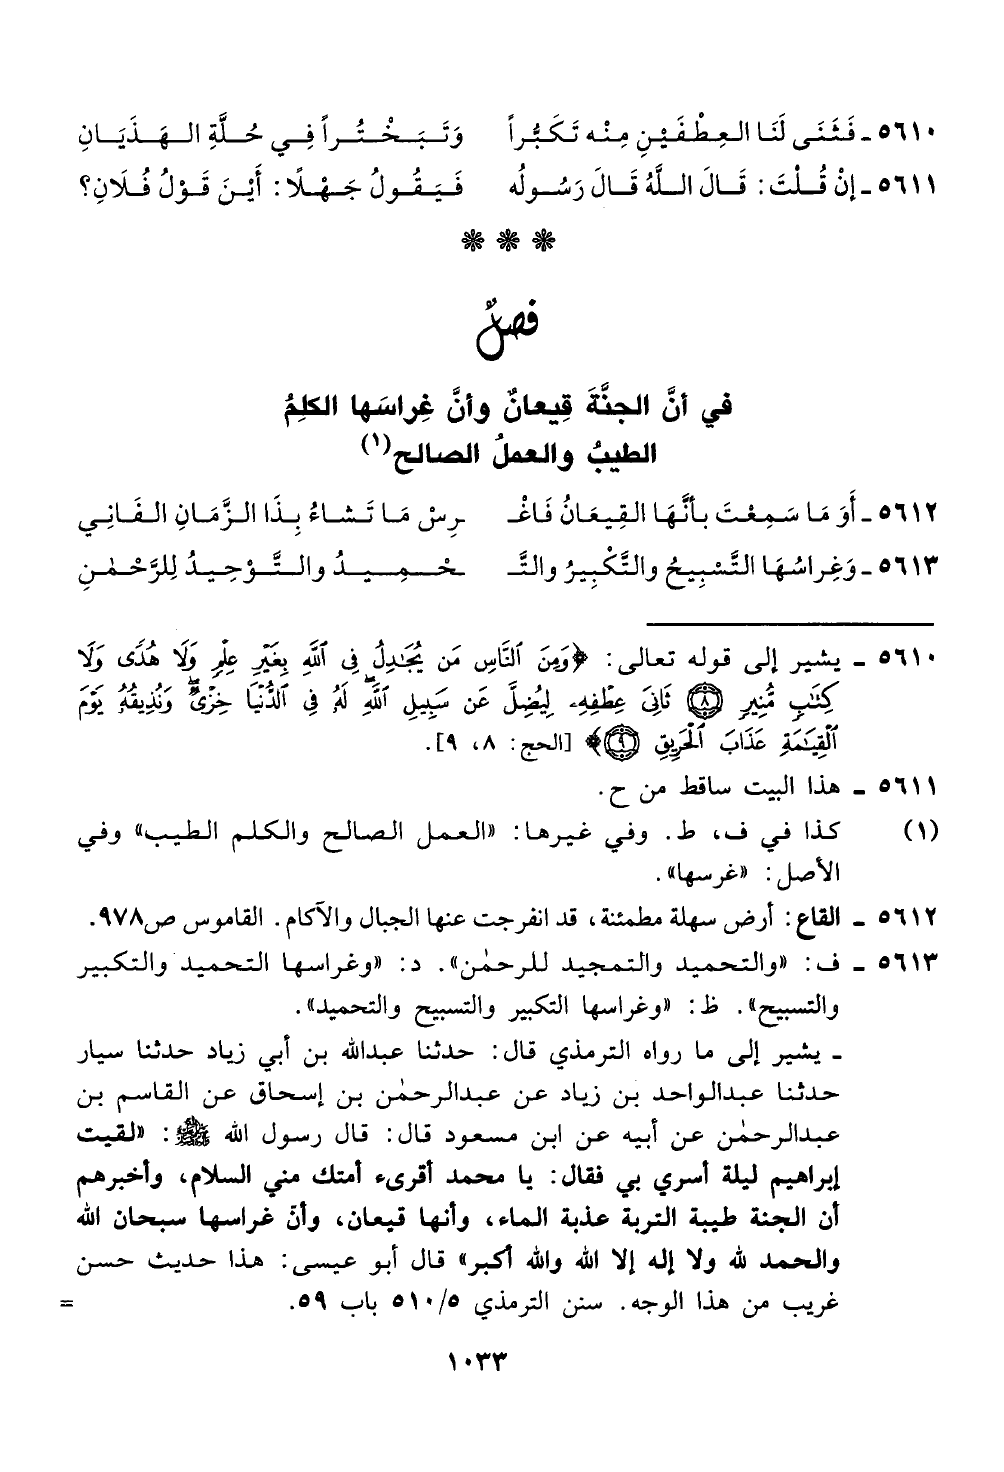 ٥٦١٠ ـ فَثَنَى لَنَا العِطْفَيْنِ مِنْه تَكَبُّراً وَتَبَخْتُراً فِي حُلَّةِ الهَذَيَانِ
٥٦١١ ـ إنْ قُلْتَ: قَالَ اللَّهُ قَالَ رَسُولُه فَيَقُولُ جَهْلًا: أَيْنَ قَوْلُ فُلَانِ؟
❋ ❋ ❋
فصلٌ
في أنَّ الجنَّةَ قِيعانٌ وأنَّ غِراسَها الكلِمُ
الطيبُ والعملُ الصالح(١)
٥٦١٢ ـ أَوَ مَا سَمِعْتَ بأنَّهَا القِيعَانُ فَاغْـ ـرِسْ مَا تَشَاءُ بِذَا الزَّمَانِ الفَانِي
٥٦١٣ ـ وَغِراسُهَا التَّسْبِيحُ والتَّكْبِيرُ والتَّـ ـحْمِيدُ والتَّوْحِيدُ لِلرَّحْمٰنِ
٥٦١٠ ـ يشير إلى قوله تعالى: ﴿وَمِنَ ٱلنَّاسِ مَن يُجَٰدِلُ فِى ٱللَّهِ بِغَيْرِ عِلْمٍ وَلَا هُدًى وَلَا
كِتَٰبٍ مُّنِيرٍ ٨ ثَانِىَ عِطْفِهِۦ لِيُضِلَّ عَن سَبِيلِ ٱللَّهِۖ لَهُۥ فِى ٱلدُّنْيَا خِزْىٌۖ وَنُذِيقُهُۥ يَوْمَ
ٱلْقِيَٰمَةِ عَذَابَ ٱلْحَرِيقِ ٩﴾ [الحج: ٨، ٩].
٥٦١١ ـ هذا البيت ساقط من ح.
(١) كذا في ف، ط. وفي غيرها: «العمل الصالح والكلم الطيب» وفي
الأصل: «غرسها».
٥٦١٢ ـ القاع: أرض سهلة مطمئنة، قد انفرجت عنها الجبال والآكام. القاموس ص٩٧٨.
٥٦١٣ ـ ف: «والتحميد والتمجيد للرحمٰن». د: «وغراسها التحميد والتكبير
والتسبيح». ظ: «وغراسها التكبير والتسبيح والتحميد».
ـ يشير إلى ما رواه الترمذي قال: حدثنا عبدالله بن أبي زياد حدثنا سيار
حدثنا عبدالواحد بن زياد عن عبدالرحمٰن بن إسحاق عن القاسم بن
عبدالرحمٰن عن أبيه عن ابن مسعود قال: قال رسول الله ﷺ: «لقيت
إبراهيم ليلة أسري بي فقال: يا محمد أقرىء أمتك مني السلام، وأخبرهم
أن الجنة طيبة التربة عذبة الماء، وأنها قيعان، وأنّ غراسها سبحان الله
والحمد لله ولا إله إلا الله والله أكبر» قال أبو عيسى: هذا حديث حسن
غريب من هذا الوجه. سنن الترمذي ٥١٠/٥ باب ٥٩. =
١٠٣٣